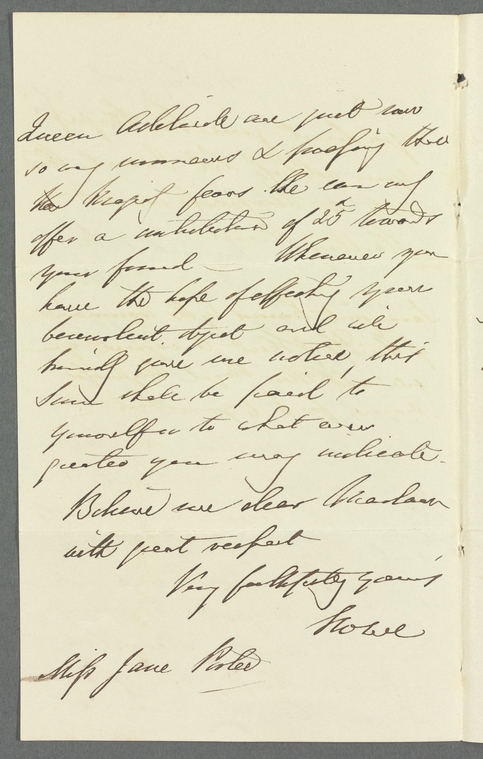 Queen Adelaide are just now
so very numerous & pressing that
Her Majesty fears She can only
offer a contribution of 25£ towards
your fund — Whenever you
have the hope of effecting your
benevolent object and will
kindly give me notice, this
Sum shall be paid to
yourself or to what ever
quarter you may indicate.
Believe me dear Madam
with great respect
Very faithfully yours
Howe
Miss Jane Porter